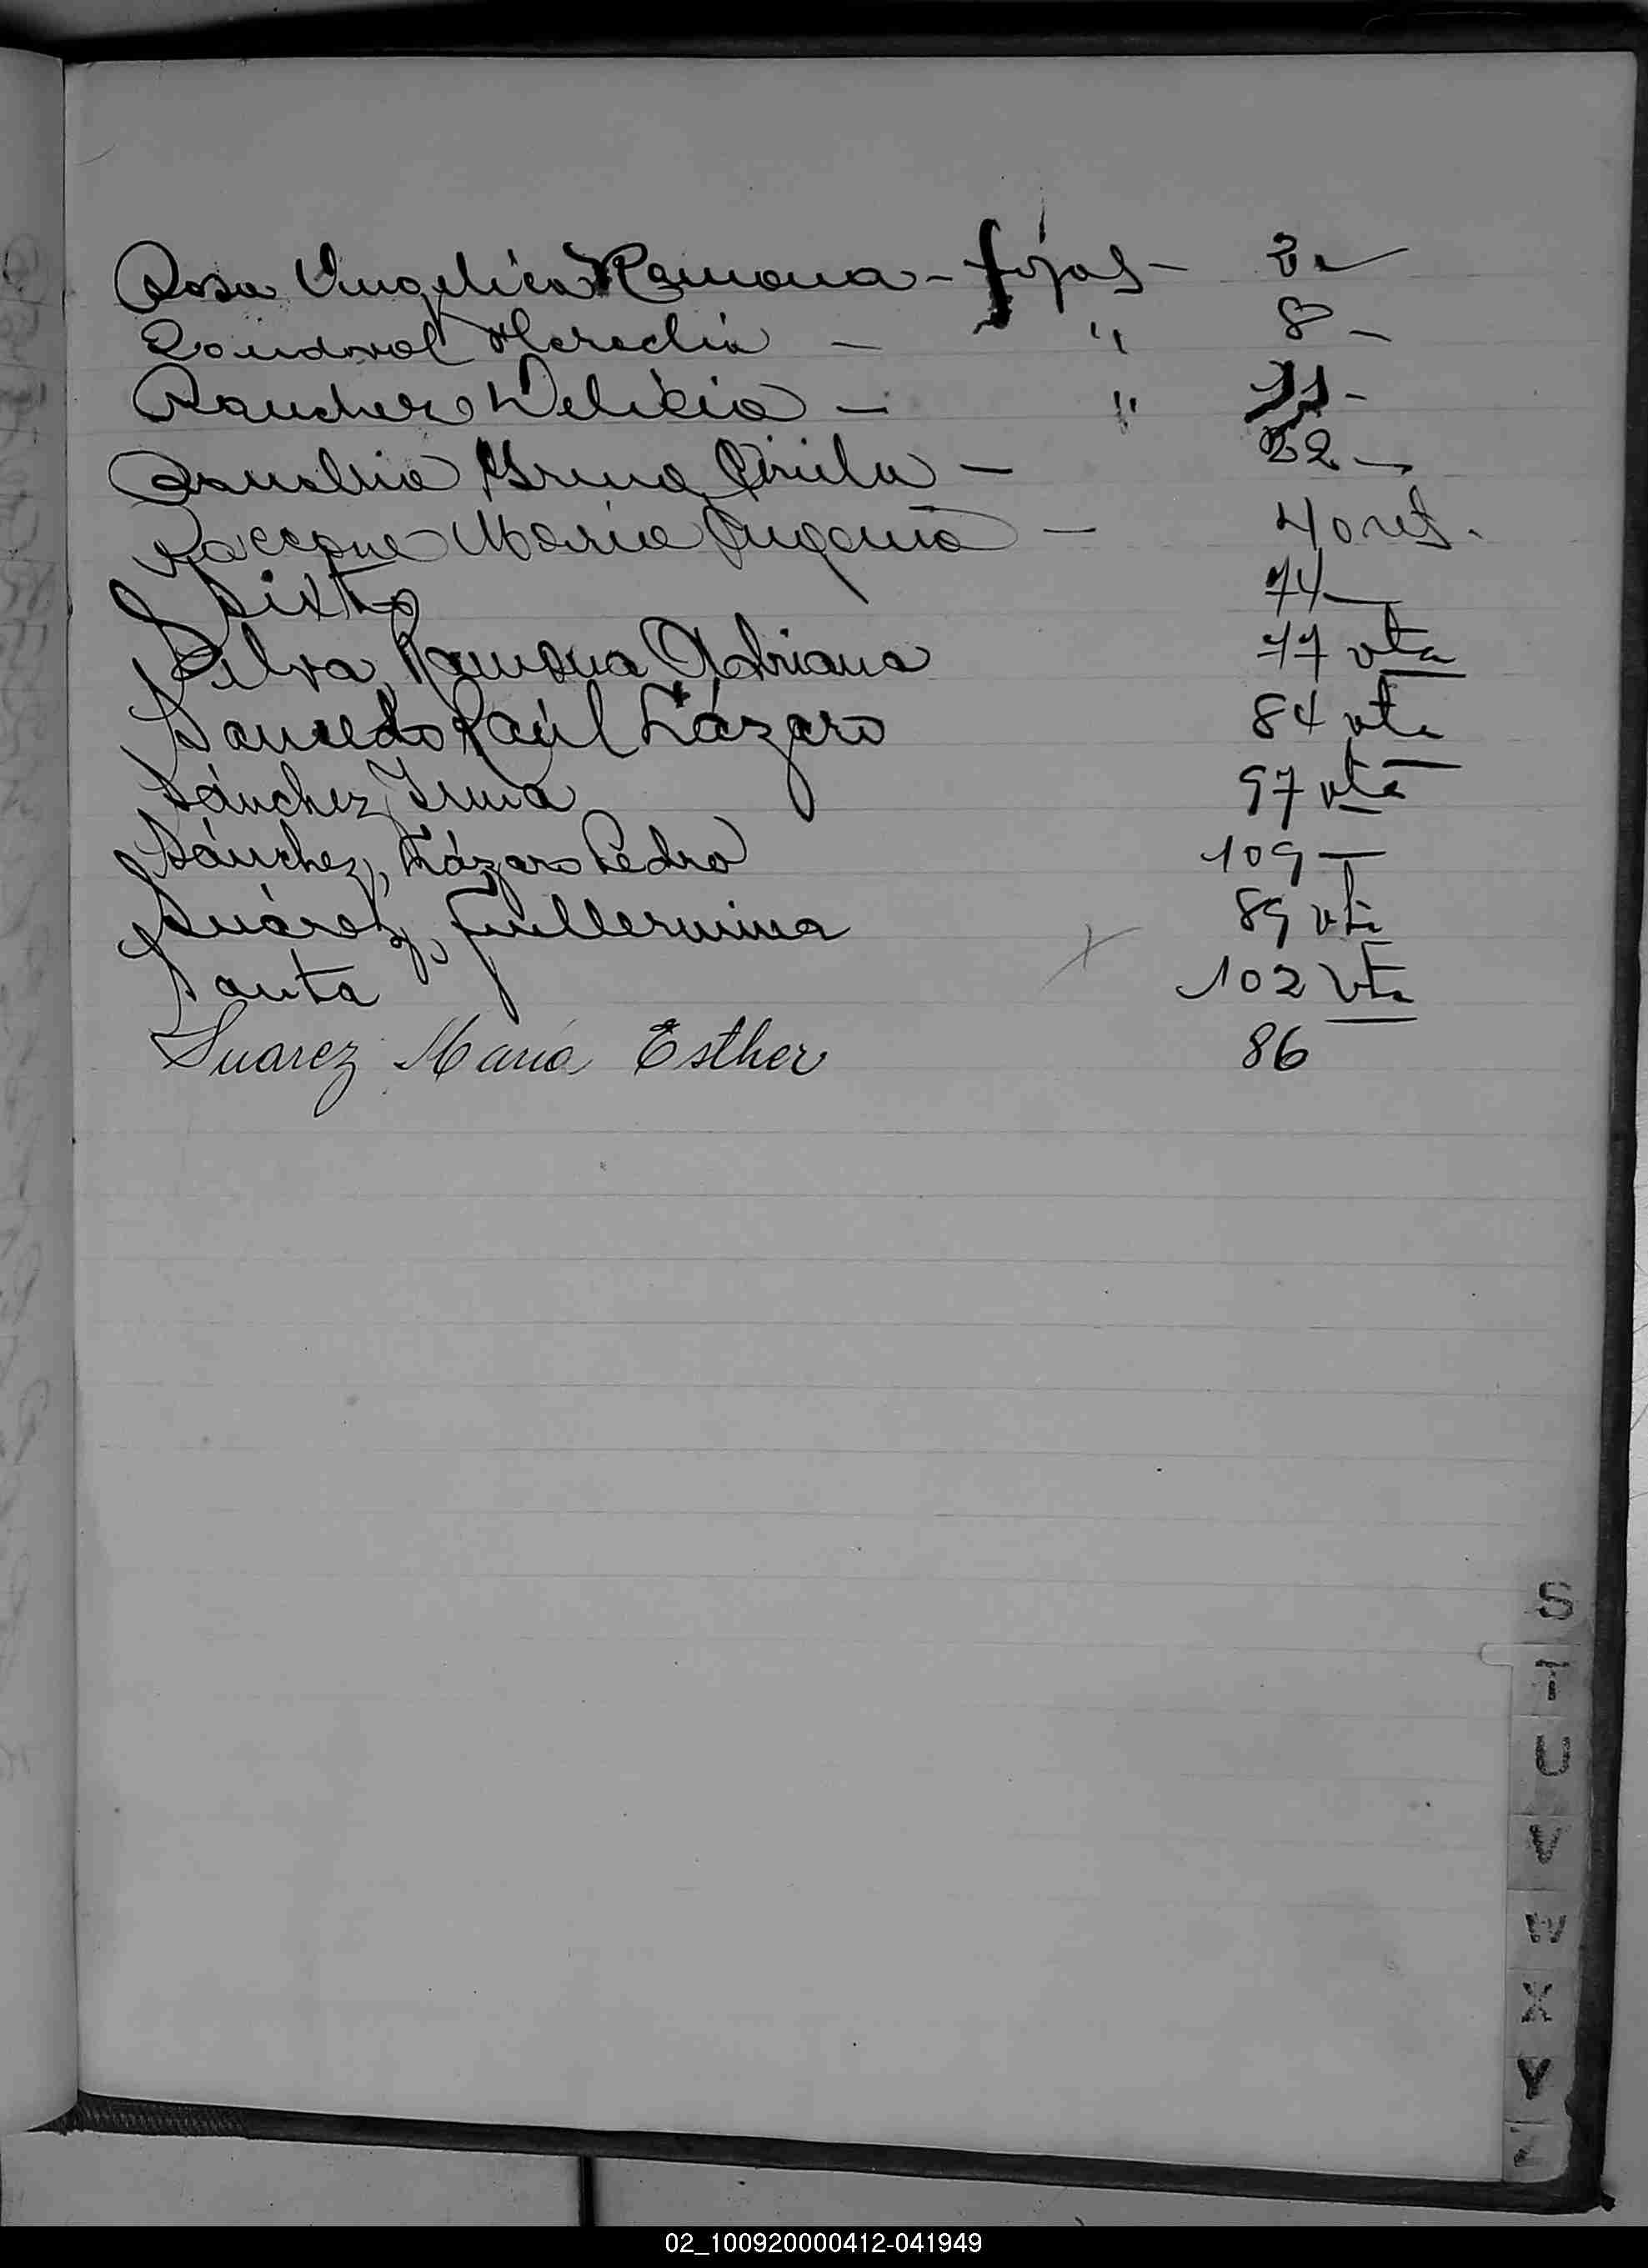 Rosa Angelica Ramona - fojas - 2 -
Sandoval Heredia - " 8 -
Sanchez Delicia - " 11 -
Irma 22 -
Saccone Maria Eugenia - 40 vt -
Sixto 74 -
Silva, Ramona Adriana 77 vta
Saucedo Raúl Lázaro 84 vta
Sánchez, Irma 97 vta
Sánchez, Lázaro Pedro 109 -
Suárez, Guillermina 89 vta
Santa x 102 vta
Suarez María Esther 86
S
T
U
V
W
X
Y
02_100920000412-041949